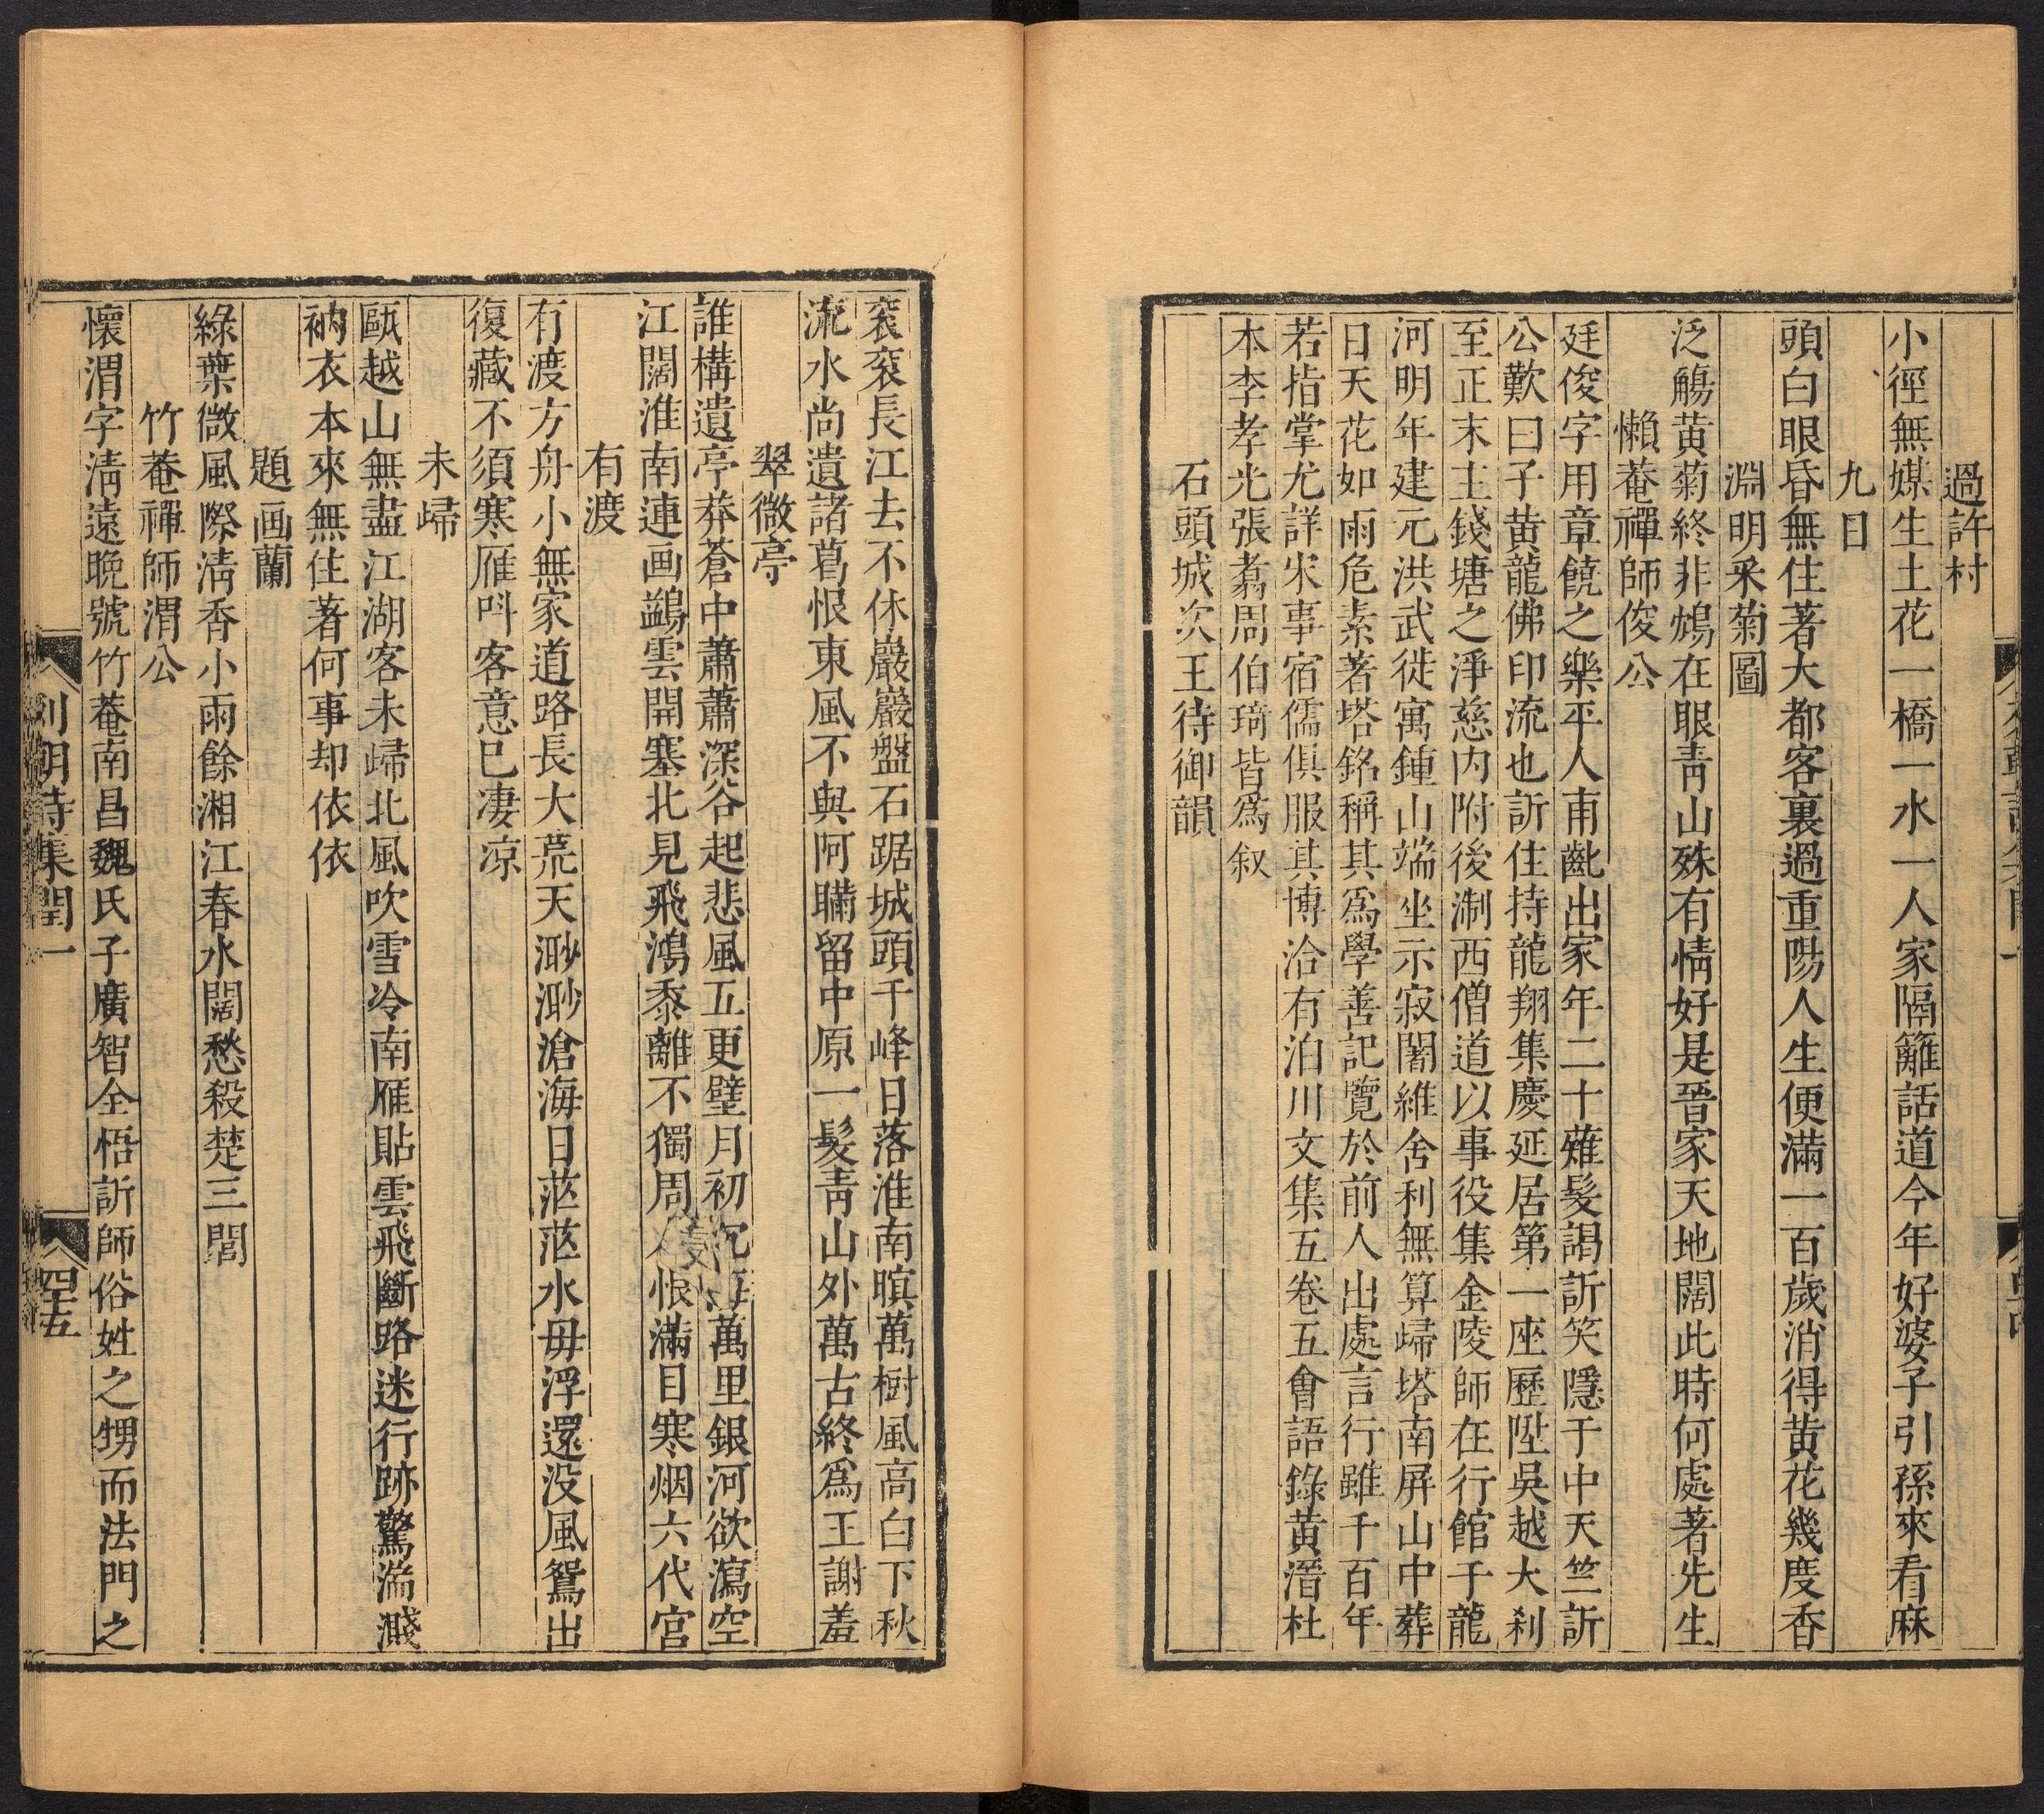 過許村
小徑無媒生土花一橋一水一人家隔籬話道今年好婆子引孫來看麻
九日
頭白眼昏無住著大都客裏過重陽人生便滿一百歲消得黄花幾度香
淵明采菊圖
泛觴黄菊終非鴆在眼靑山殊有情好是晉家天地闊此時何處著先生
懶菴禪師俊公
廷俊字用章饒之樂平人甫齔出家年二十薙髮謁訢笑隱于中天竺訢
公歎曰子黄龍佛印流也訢住持龍翔集慶延居第一座歷陞吳越大刹
至正末主錢塘之淨慈内附後淛西僧道以事役集金陵師在行館于龍
河明年建元洪武徙寓鍾山端坐示寂闍維舍利無算歸塔南屏山中葬
日天花如雨危素著塔銘稱其爲學善記覽於前人出處言行雖千百年
若指掌尤詳宋事宿儒俱服其博洽有泊川文集五卷五會語錄黄溍杜
本李孝光張翥周伯琦皆爲叙
石頭城次王待御韻
袞袞長江去不休巖巖盤石踞城頭千峰日落淮南暝萬樹風高白下秋
流水尚遺諸葛恨東風不與阿瞞留中原一髮靑山外萬古終爲王謝羞
翠微亭
誰構遺亭莽蒼中蕭蕭深谷起悲風五更璧月初沉海萬里銀河欲瀉空
江闊淮南連画鷁雲開塞北見飛鴻黍離不獨周人恨滿目寒烟六代宮
有渡
有渡方舟小無家道路長大荒天渺渺滄海日茫茫水毋浮還没風鴛出
復藏不須寒雁呌客意已凄凉
未歸
甌越山無盡江湖客未歸北風吹雪冷南雁貼雲飛斷路迷行跡驚湍濺
衲衣本來無住著何事却依依
題画蘭
綠葉微風際淸香小雨餘湘江春水闊愁殺楚三閭
竹菴禪師渭公
懷渭字淸遠晚號竹菴南昌魏氏子廣智全悟訢師俗姓之甥而法門之
列朝詩集閏一
四十五